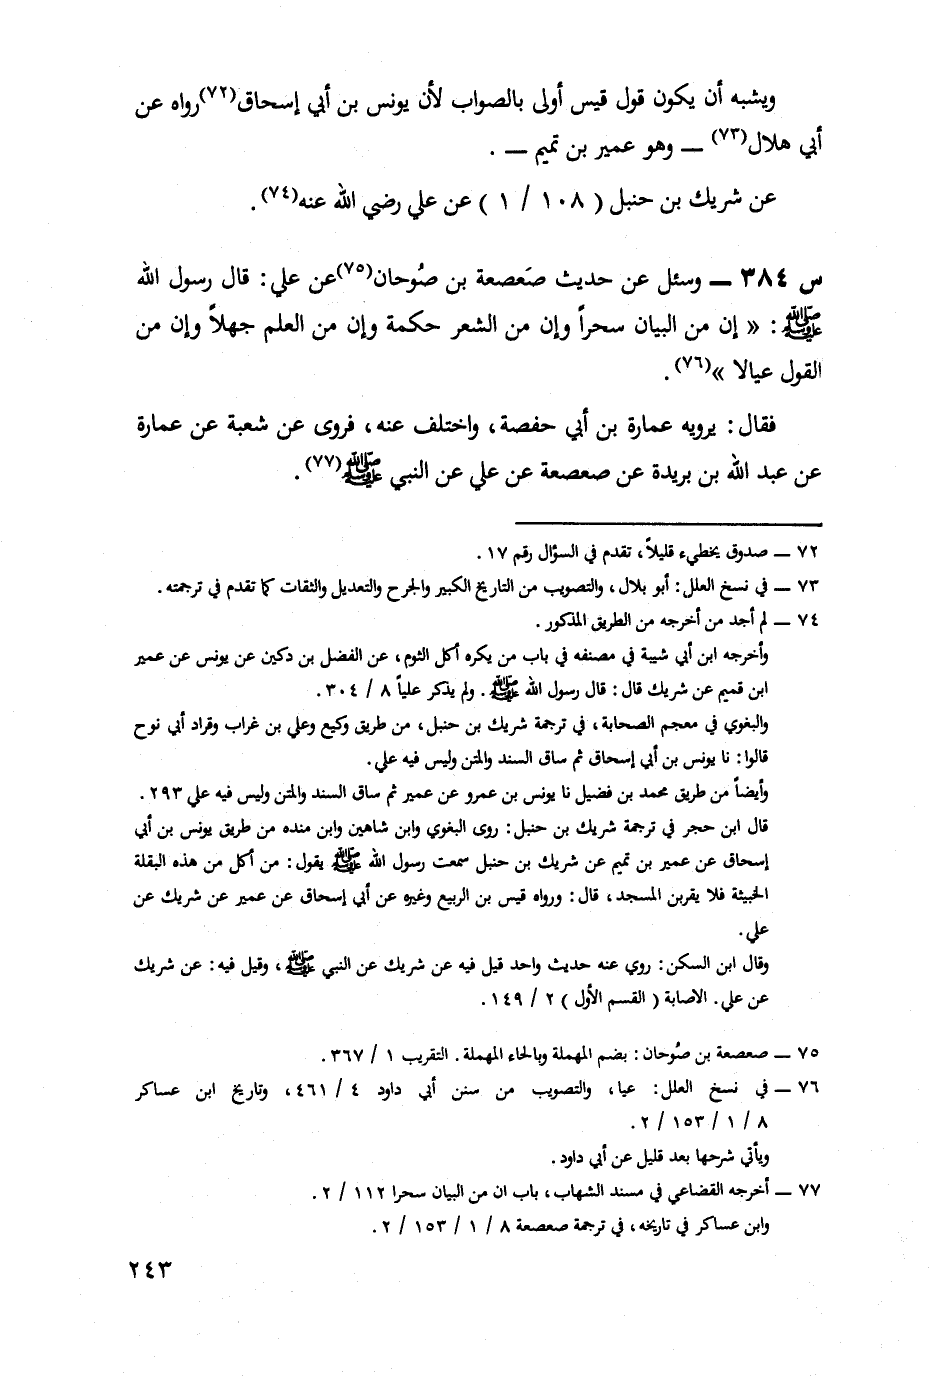 ويشبه أن يكون قول قيس أولى بالصواب لأن يونس بن أبي إسحاق(٧٢) رواه عن
أبي هلال(٧٣) ــ وهو عمير بن تميم ــ .
عن شريك بن حنبل ( ١٠٨ / ١ ) عن علي رضي الله عنه(٧٤) .
س ٣٨٤ ــ وسئل عن حديث صَعصعة بن صُوحان(٧٥) عن علي : قال رسول الله
ﷺ : « إن من البيان سحراً وإن من الشعر حكمة وإن من العلم جهلاً وإن من
القول عيالا »(٧٦) .
فقال : يرويه عمارة بن أبي حفصة ، واختلف عنه ، فروى عن شعبة عن عمارة
عن عبد الله بن بريدة عن صعصعة عن علي عن النبي ﷺ(٧٧) .
٧٢ ــ صدوق يخطيء قليلاً ، تقدم في السؤال رقم ١٧ .
٧٣ ــ في نسخ العلل : أبو بلال ، والتصويب من التاريخ الكبير والجرح والتعديل والثقات كما تقدم في ترجمته .
٧٤ ــ لم أجد من أخرجه من الطريق المذكور .
وأخرجه ابن أبي شيبة في مصنفه في باب من يكره أكل الثوم ، عن الفضل بن دكين عن يونس عن عمير
ابن قميم عن شريك قال : قال رسول الله ﷺ . ولم يذكر علياً ٨ / ٣٠٤ .
والبغوي في معجم الصحابة ، في ترجمة شريك بن حنبل ، من طريق وكيع وعلي بن غراب وقراد أبي نوح
قالوا : نا يونس بن أبي إسحاق ثم ساق السند والمتن وليس فيه علي .
وأيضاً من طريق محمد بن فضيل نا يونس بن عمرو عن عمير ثم ساق السند والمتن وليس فيه علي ٢٩٣ .
قال ابن حجر في ترجمة شريك بن حنبل : روى البغوي وابن شاهين وابن منده من طريق يونس بن أبي
إسحاق عن عمير بن تميم عن شريك بن حنبل سمعت رسول الله ﷺ يقول : من أكل من هذه البقلة
الخبيثة فلا يقربن المسجد ، قال : ورواه قيس بن الربيع وغيره عن أبي إسحاق عن عمير عن شريك عن
علي .
وقال ابن السكن : روي عنه حديث واحد قيل فيه عن شريك عن النبي ﷺ ، وقيل فيه : عن شريك
عن علي . الاصابة ( القسم الأول ) ٢ / ١٤٩ .
٧٥ ــ صعصعة بن صُوحان : بضم المهملة وبالحاء المهملة . التقريب ١ / ٣٦٧ .
٧٦ ــ في نسخ العلل : عيا ، والتصويب من سنن أبي داود ٤ / ٤٦١ ، وتاريخ ابن عساكر
٨ / ١ / ١٥٣ / ٢ .
ويأتي شرحها بعد قليل عن أبي داود .
٧٧ ــ أخرجه القضاعي في مسند الشهاب ، باب ان من البيان سحرا ١١٢ / ٢ .
وابن عساكر في تاريخه ، في ترجمة صعصعة ٨ / ١ / ١٥٣ / ٢ .
٢٤٣